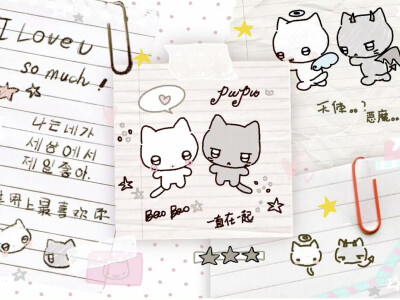 I Love u
so much!
나는 네가
세상에서
제일 좋아.
世界上最喜欢你
pupu
Bao Bao
一直在一起
天使。。?
恶魔。。